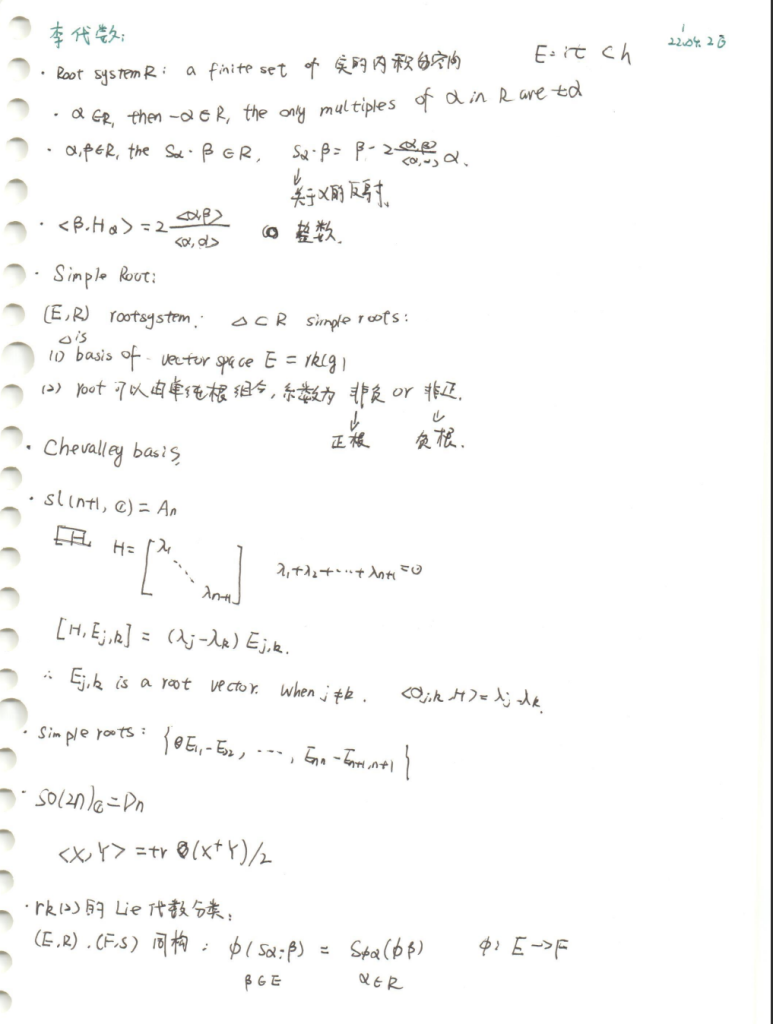 李代数:
22.04.26
· Root system R: a finite set of 实的内积的空间 E=it ⊂ h
· α∈R, then -α∈R, the only multiples of α in R are ±α
· α,β∈R, the Sα·β∈R, Sα·β = β-2<α,β>/<α,α> α.
↓
关于α的反射.
· <β,Hα> = 2 <α,β>/<α,α> 整数.
· Simple Root:
(E,R) rootsystem: Δ⊂R simple roots:
Δ is
(1) basis of vector space E = rk(g)
(2) root 可以由单纯根组合, 系数为 非负 or 非正.
↓ ↓
正根 负根.
· Chevalley basis
· sl(n+1, ℂ) = An
H = [λ1 ⋱ λn+1] λ1+λ2+⋯+λn+1=0
[H,Ej,k] = (λj-λk) Ej,k.
∴ Ej,k is a root vector. when j≠k. <αj,k,H>=λj-λk
· Simple roots: {E11-E22, ⋯, Enn-En+1,n+1}
· SO(2n)ℂ=Dn
<X,Y> =tr(X†Y)/2
· rk(2)的 Lie 代数分类:
(E,R).(F,S) 同构: ϕ(Sα·β) = Sϕα(ϕβ) ϕ: E→F
β∈E α∈R